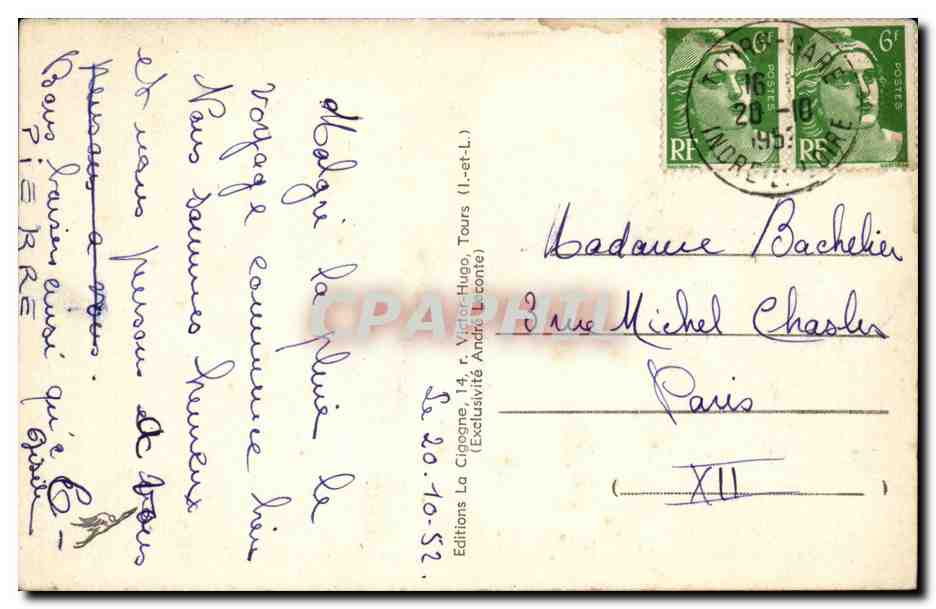 Le 20.10.52.
Malgré la pluie le
voyage commence bien
Nous sommes heureux
et nous pensons à vous
pensons à vous.
Bons baisers ainsi qu'à
PIERRE
Gisèle
Editions La Cigogne, 14, r. Victor-Hugo, Tours (I.-et-L.)
(Exclusivité André Leconte)
CPAPHIL
6F
POSTES
RF
6F
POSTES
RF
TOURS-GARE
16
20-10
195
INDRE-
Madame Bachelier
3 rue Michel Chasles
Paris
( XII )